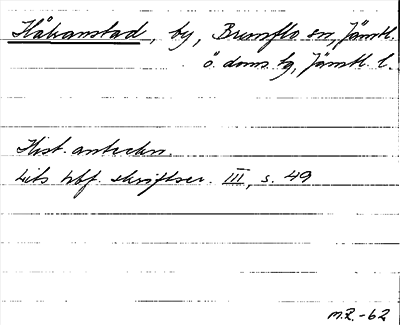 Håkanstad, by, Brunflo sn, Jämtl.
ö. doms. tg, Jämtl. l.
Hist. anteckn.
Lits hbf. skriftser. III, s. 49
M.R.-62